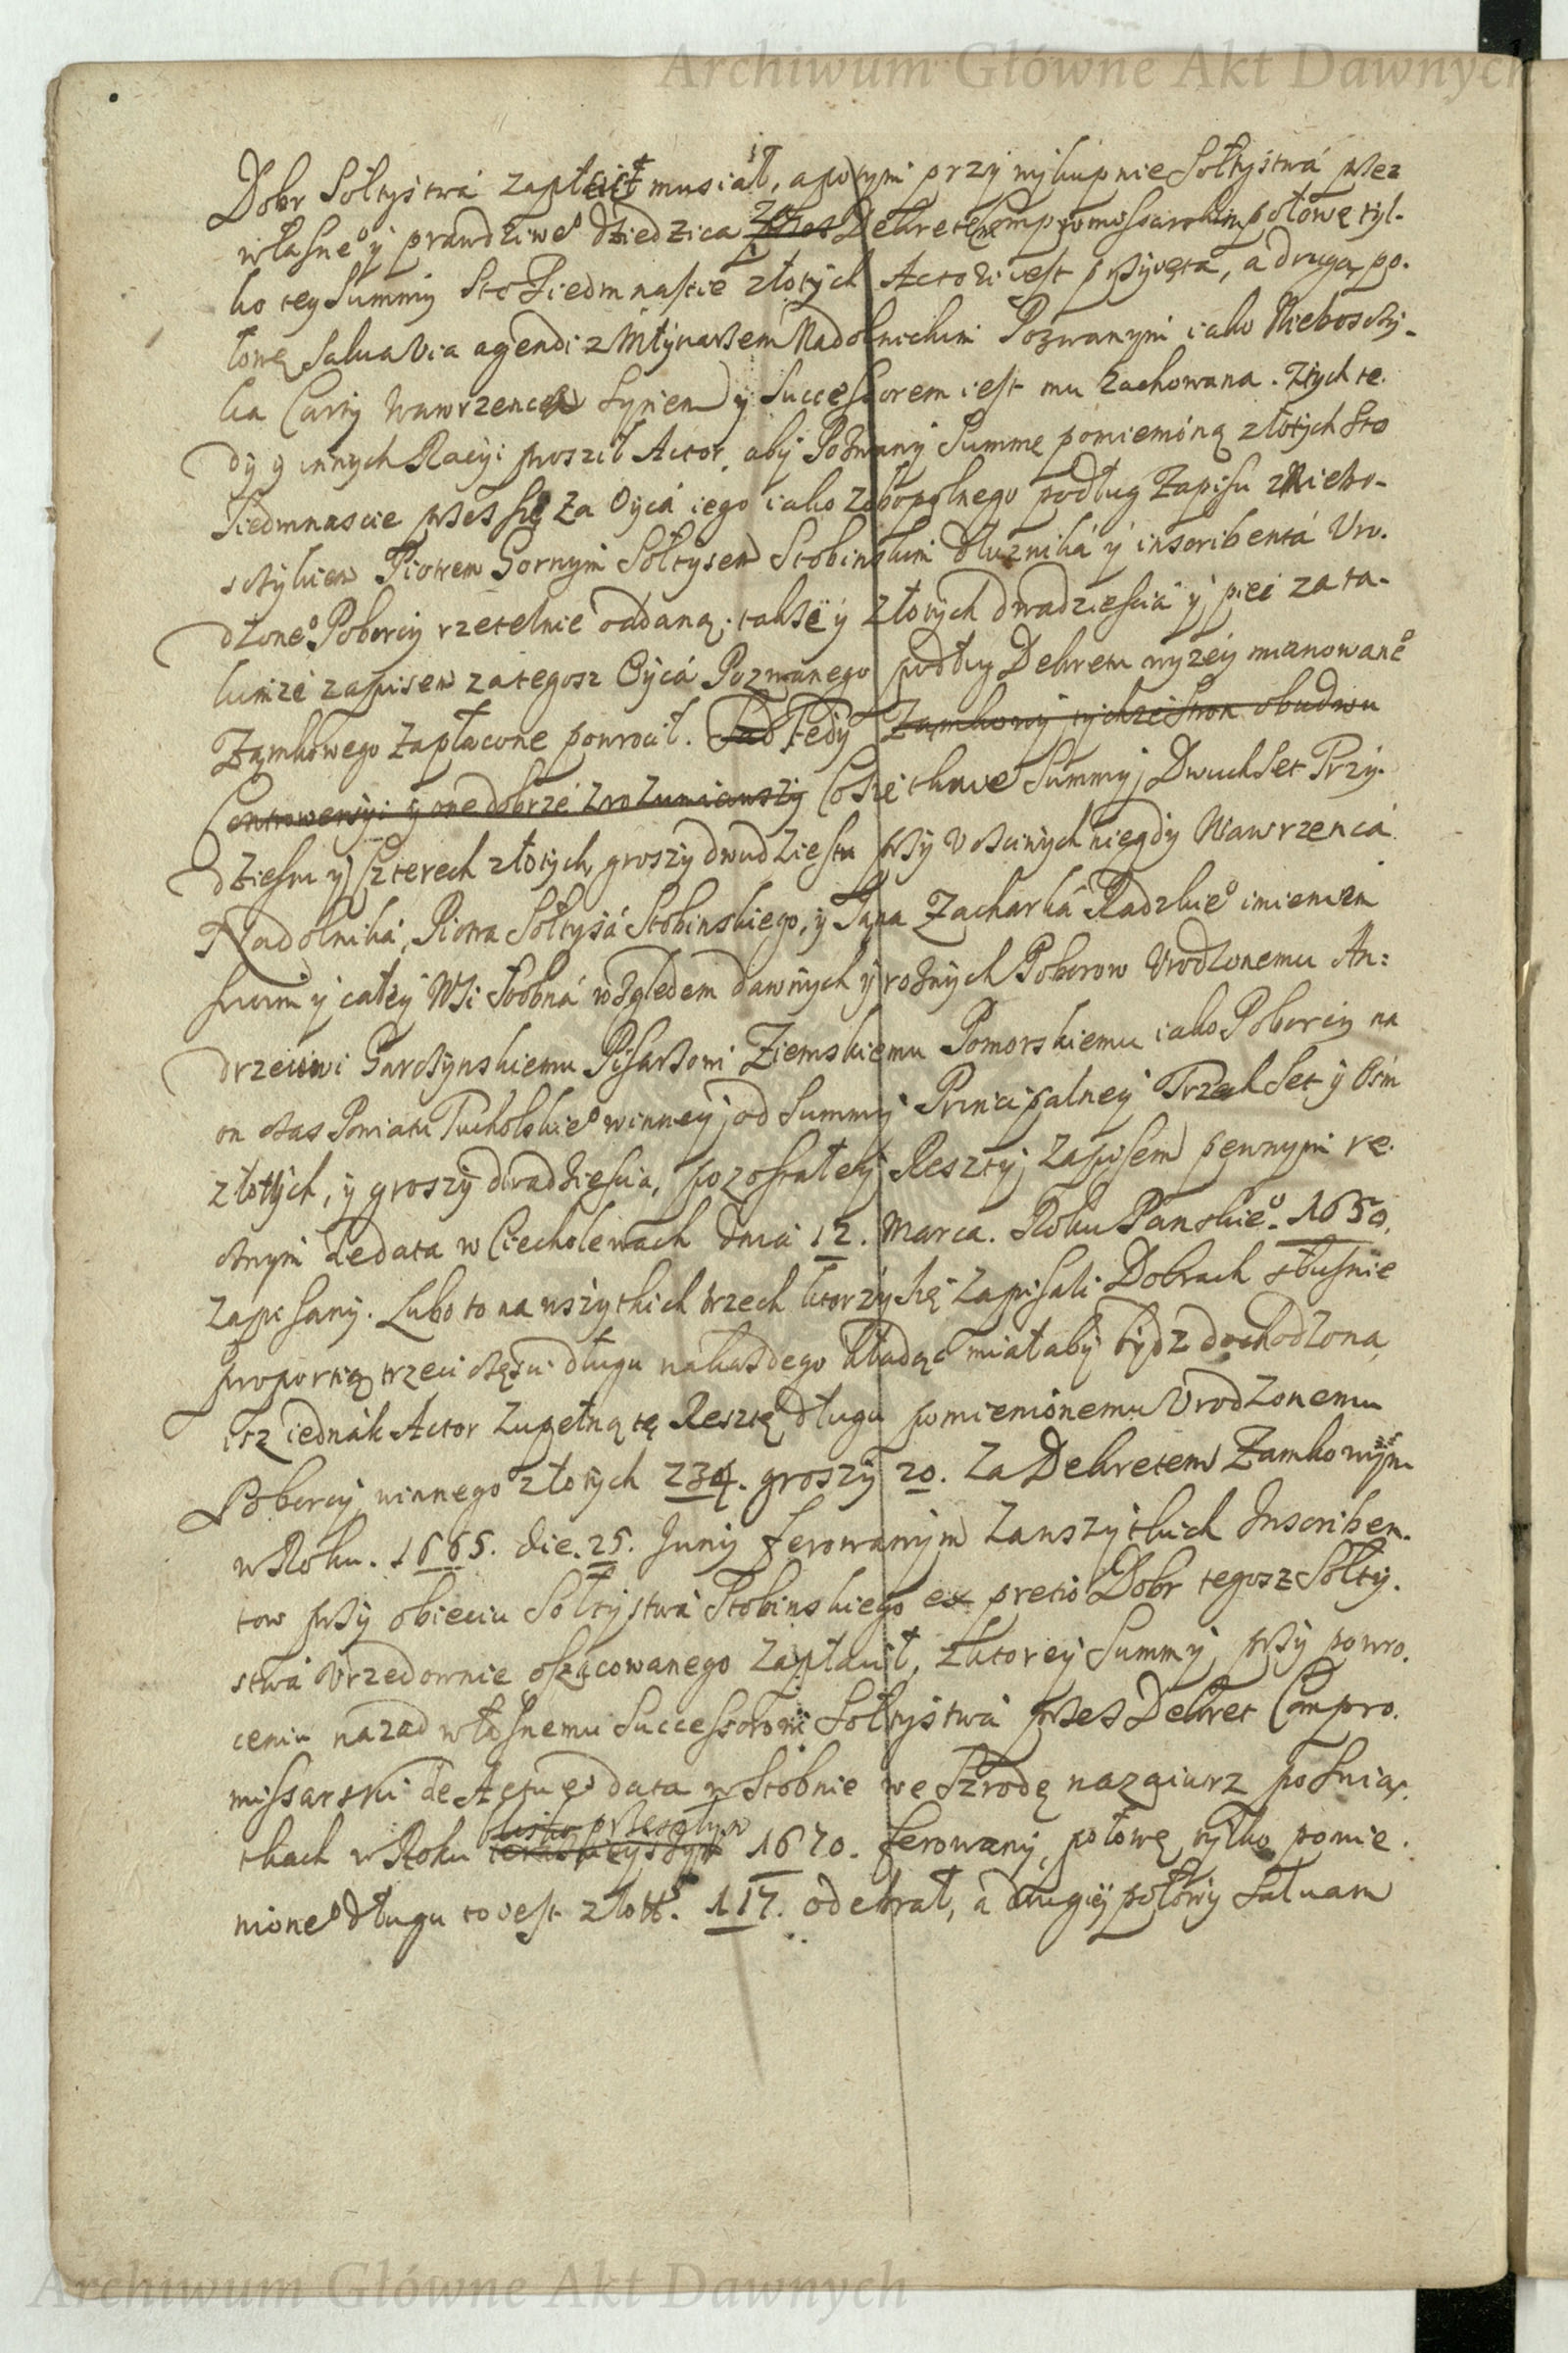 Archiwum Główne Akt Dawnych
Dobr Sołtystwá zapłacił musiał, a potym przy wykupnie Sołtystwá przez
własneº y prawdziweº dziedzica za Dekretem Compromissarskim połowę tyl-
ko tey Summy Sto Siedmnaście złotych Actori iest przyięta, a drugą po-
łowę salua via agendi z Młynarzem Nadolnickim Pozwanym iako Nieboszczy-
ka Carey Wawrzenca Synem y Successorem iest mu zachowana. Z tych te-
dy y innych Racyi prosził Actor, aby Pozwany Summę pomienióną złotych Sto
Siedmnascie przes się za Oycá iego iako zobopolnego podług Zapisu z Niebo-
sczykiem Piotrem Gornym Sołtysem Stobinskim dłuzniká y inscribentá Uro-
dzoneº Poborcy rzetelnie oddaną; takze y złotych dwadziescia y pięć za ta-
kimże zapisem za tegosz Oycá Pozwanego podług Dekretu wyżey mianowaneº
Zamkowego zapłacone powrocił. Sąd Tedy Zamkowy tychze stron obudwu
Controwersyi y one dobrze zrozumiawszy Co się tknie Summy Dwuchset Trzy-
dziestu y Czterech złotych, groszy dwudziestu przy Ucciwych niegdy Wawrzencá
Nadolniká, Piotra Sołtysá Stobinskiego, y Jana Zacharká Radzkieº imieniem
swym y całey Wsi Stobná względem dawnych y rożnych Poborow Urodzonemu An-
drzeiowi Garczynskiemu Pisarzowi Ziemskiemu Pomorskiemu iako Poborcy na
on czas Powiatu Tucholskieº winney, od Summy Principalney Trzech Set y Ośm
złotych, y groszy dwadziescia, pozostałey Reszty, Zapisem pewnym re-
cznym de data w Ciecholewach dnia 12. Marca. Roku Panskieº. 1650.
zapisany. Lubo to na wszytkich trzech ktorzy się zapisali Dobrach słusnie
proportią trzeci częsci długu na każdego kładąc miałaby bydz dochodzona,
isz iednák Actor zupełną tę Resztę długu pomienionemu Urodzonemu
Poborcy winnego złotych 234. groszy 20. za Dekretem Zamkowym
w Roku. 1665. die. 25. Juny ferowanym za wszytkich Inscriben-
tow przy obięciu Sołtystwá Stobinskiego ex pretio Dobr tegosz Sołty-
stwá Urzędownie oszacowanego zapłacił, z ktorey Summy, przy powro-
ceniu nazad własnemu Successorowi Sołtystwá przes Dekret Compro-
missarski de Actu et data w Stobnie we Szrodę nazaiurz po Swią-
tkach w Roku blisko przeszłym 1670. ferowany, połowę tylko pomie-
nioneº długu to iest złott. 117. odebrał, á drugiey połowy saluam
Archiwum Główne Akt Dawnych